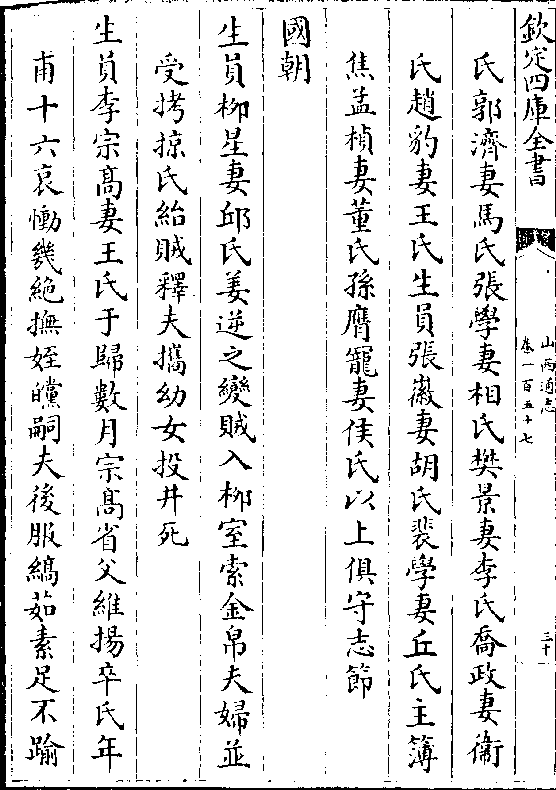 欽定四庫全書
山西通志
卷一百五十七
三十
氏郭濟妻馬氏張學妻相氏樊景妻李氏喬政妻衞
氏趙豹妻王氏生員張徽妻胡氏裴學妻丘氏主簿
焦孟楨妻董氏孫膺寵妻侯氏以上俱守志節
國朝
生員柳星妻邱氏姜逆之變賊入柳室索金帛夫婦並
受拷掠氏紿賊釋夫攜幼女投井死
生員李宗髙妻王氏于歸數月宗髙省父維揚卒氏年
甫十六哀慟幾絶撫姪曭嗣夫後服縞茹素足不踰